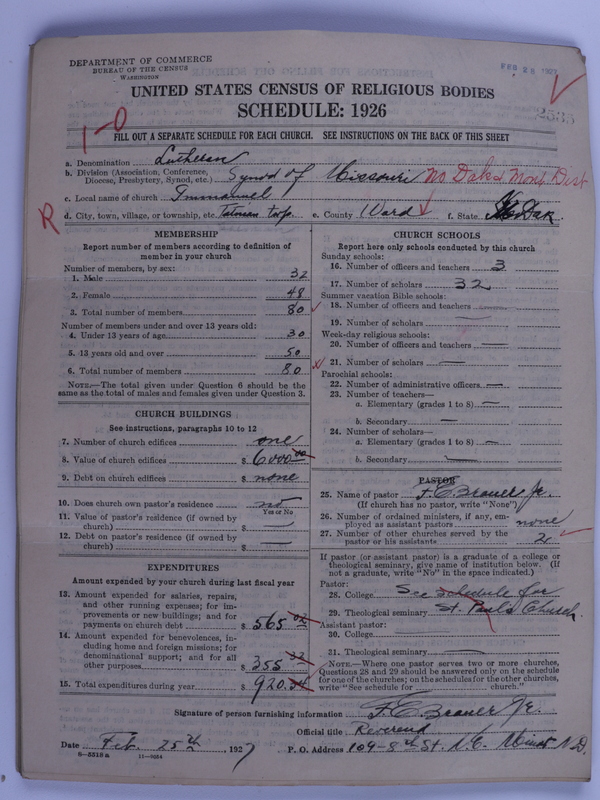 DEPARTMENT OF COMMERCE
BUREAU OF THE CENSUS
WASHINGTON
UNITED STATES CENSUS OF RELIGIOUS BODIES
SCHEDULE: 1926
2535
1-0
FILL OUT A SEPARATE SCHEDULE FOR EACH CHURCH. SEE INSTRUCTIONS ON THE BACK OF THIS SHEET
a. Denomination Lutheran
b. Division (Association, Conference, Diocese, Presbytery, Synod, etc.) Synod of Missouri No Dak & Mont Dist
c. Local name of church Immanuel
R
d. City, town, village, or township, etc. Tatman twp. e. County Ward f. State No Dak.
MEMBERSHIP
Report number of members according to definition of
member in your church
Number of members, by sex:
1. Male 32
2. Female 48
3. Total number of members 80
Number of members under and over 13 years old:
4. Under 13 years of age 30
5. 13 years old and over 50
6. Total number of members 80
NOTE.—The total given under Question 6 should be
same as the total of males and females given under Question 3.
CHURCH BUILDINGS
See instructions, paragraphs 10 to 12
7. Number of church edifices one
8. Value of church edifices $ 6000.00
9. Debt on church edifices $ none
10. Does church own pastor's residence no
Yes or No
11. Value of pastor's residence (if owned by
church) $ —
12. Debt on pastor's residence (if owned by
church) $ —
EXPENDITURES
Amount expended by your church during last fiscal year
13. Amount expended for salaries, repairs,
and other running expenses; for im-
provements or new buildings; and for
payments on church debt $ 565.02
14. Amount expended for benevolences, in-
cluding home and foreign missions; for
denominational support; and for all
other purposes $ 355.32
15. Total expenditures during year $ 920.34
CHURCH SCHOOLS
Report here only schools conducted by this church
Sunday schools:
16. Number of officers and teachers 3
17. Number of scholars 32
Summer vacation Bible schools:
18. Number of officers and teachers —
19. Number of scholars —
Week-day religious schools:
20. Number of officers and teachers —
21. Number of scholars —
Parochial schools:
22. Number of administrative officers —
23. Number of teachers—
a. Elementary (grades 1 to 8) —
b. Secondary —
24. Number of scholars—
a. Elementary (grades 1 to 8) —
b. Secondary —
PASTOR
25. Name of pastor F. E. Brauer Jr.
(If church has no pastor, write "None")
26. Number of ordained ministers, if any, em-
ployed as assistant pastors none
27. Number of other churches served by the
pastor or his assistants 2
If pastor (or assistant pastor) is a graduate of a college or
theological seminary, give name of institution below. (If
not a graduate, write "No" in the space indicated.)
Pastor:
28. College See schedule for
29. Theological seminary St. Paul's Church.
Assistant pastor:
30. College —
31. Theological seminary —
NOTE.—Where one pastor serves two or more churches,
Questions 28 and 29 should be answered only on the schedule
for one of the churches; on the schedules for the other churches,
write "See schedule for church."
Signature of person furnishing information F. E. Brauer Jr.
Official title Reverend
Date Feb. 25th, 1927 P. O. Address 109-8th St. N.E. Minot N.D.
8-5518a 11-9054